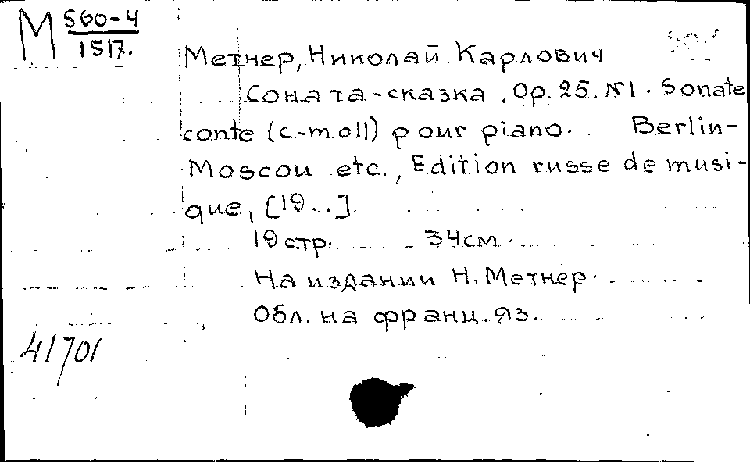 М 560-4
1517.
Метнер, Николай Карлович
Соната-сказка. Op. 25. №1. Sonate
conte (c-moll) pour piano. Berlin-
Moscou etc., Edition russe de musi-
que, [19..]
19 стр. 34см.
На издании Н. Метнер.
Обл. на франц. яз.
41701